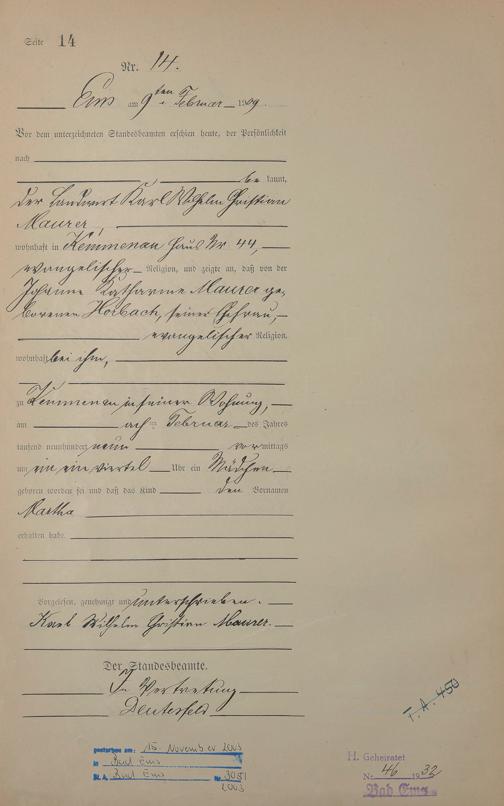 Seite 14
Nr. 14.
Ems am 9ten Februar 1909.
Vor dem unterzeichneten Standesbeamten erschien heute, der Persönlichkeit
nach
be kannt,
der Landwirt Karl Wilhelm Christian
Maurer,
wohnhaft in Kemmenau Haus Nr. 44,
evangelischer Religion, und zeigte an, daß von der
Johanne Katharine Maurer ge-
borenen Horbach, seiner Ehefrau,
evangelischer Religion,
wohnhaft bei ihm,
zu Kemmenau in seiner Wohnung,
am acht Februar des Jahres
tausend neunhundert neun vormittags
um ein ein viertel Uhr ein Mädchen
geboren worden sei und daß das Kind den Vornamen
Martha
erhalten habe.
Vorgelesen, genehmigt und unterschrieben.
Karl Wilhelm Christian Maurer.
Der Standesbeamte.
In Vertretung
gestorben am: 15. November 2003
in Bad Ems
St. A. Bad Ems Nr. 2003
T. A. 450
H. Geheiratet
Nr. 46 1932
Bad Ems